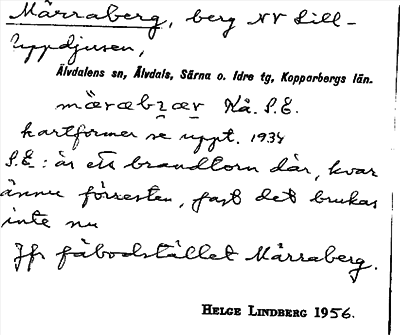 Märraberg, berg NV Lill-
Uppdjusen,
Älvdalens sn, Älvdals, Särna o. Idre tg, Kopparbergs län.
märabzær Kå. P.E.
kartformer se uppt. 1934
P.E: är ett brandtorn där, kvar
ännu förresten, fast det brukas
inte nu
Jfr fäbodstället Märraberg.
HELGE LINDBERG 1956.